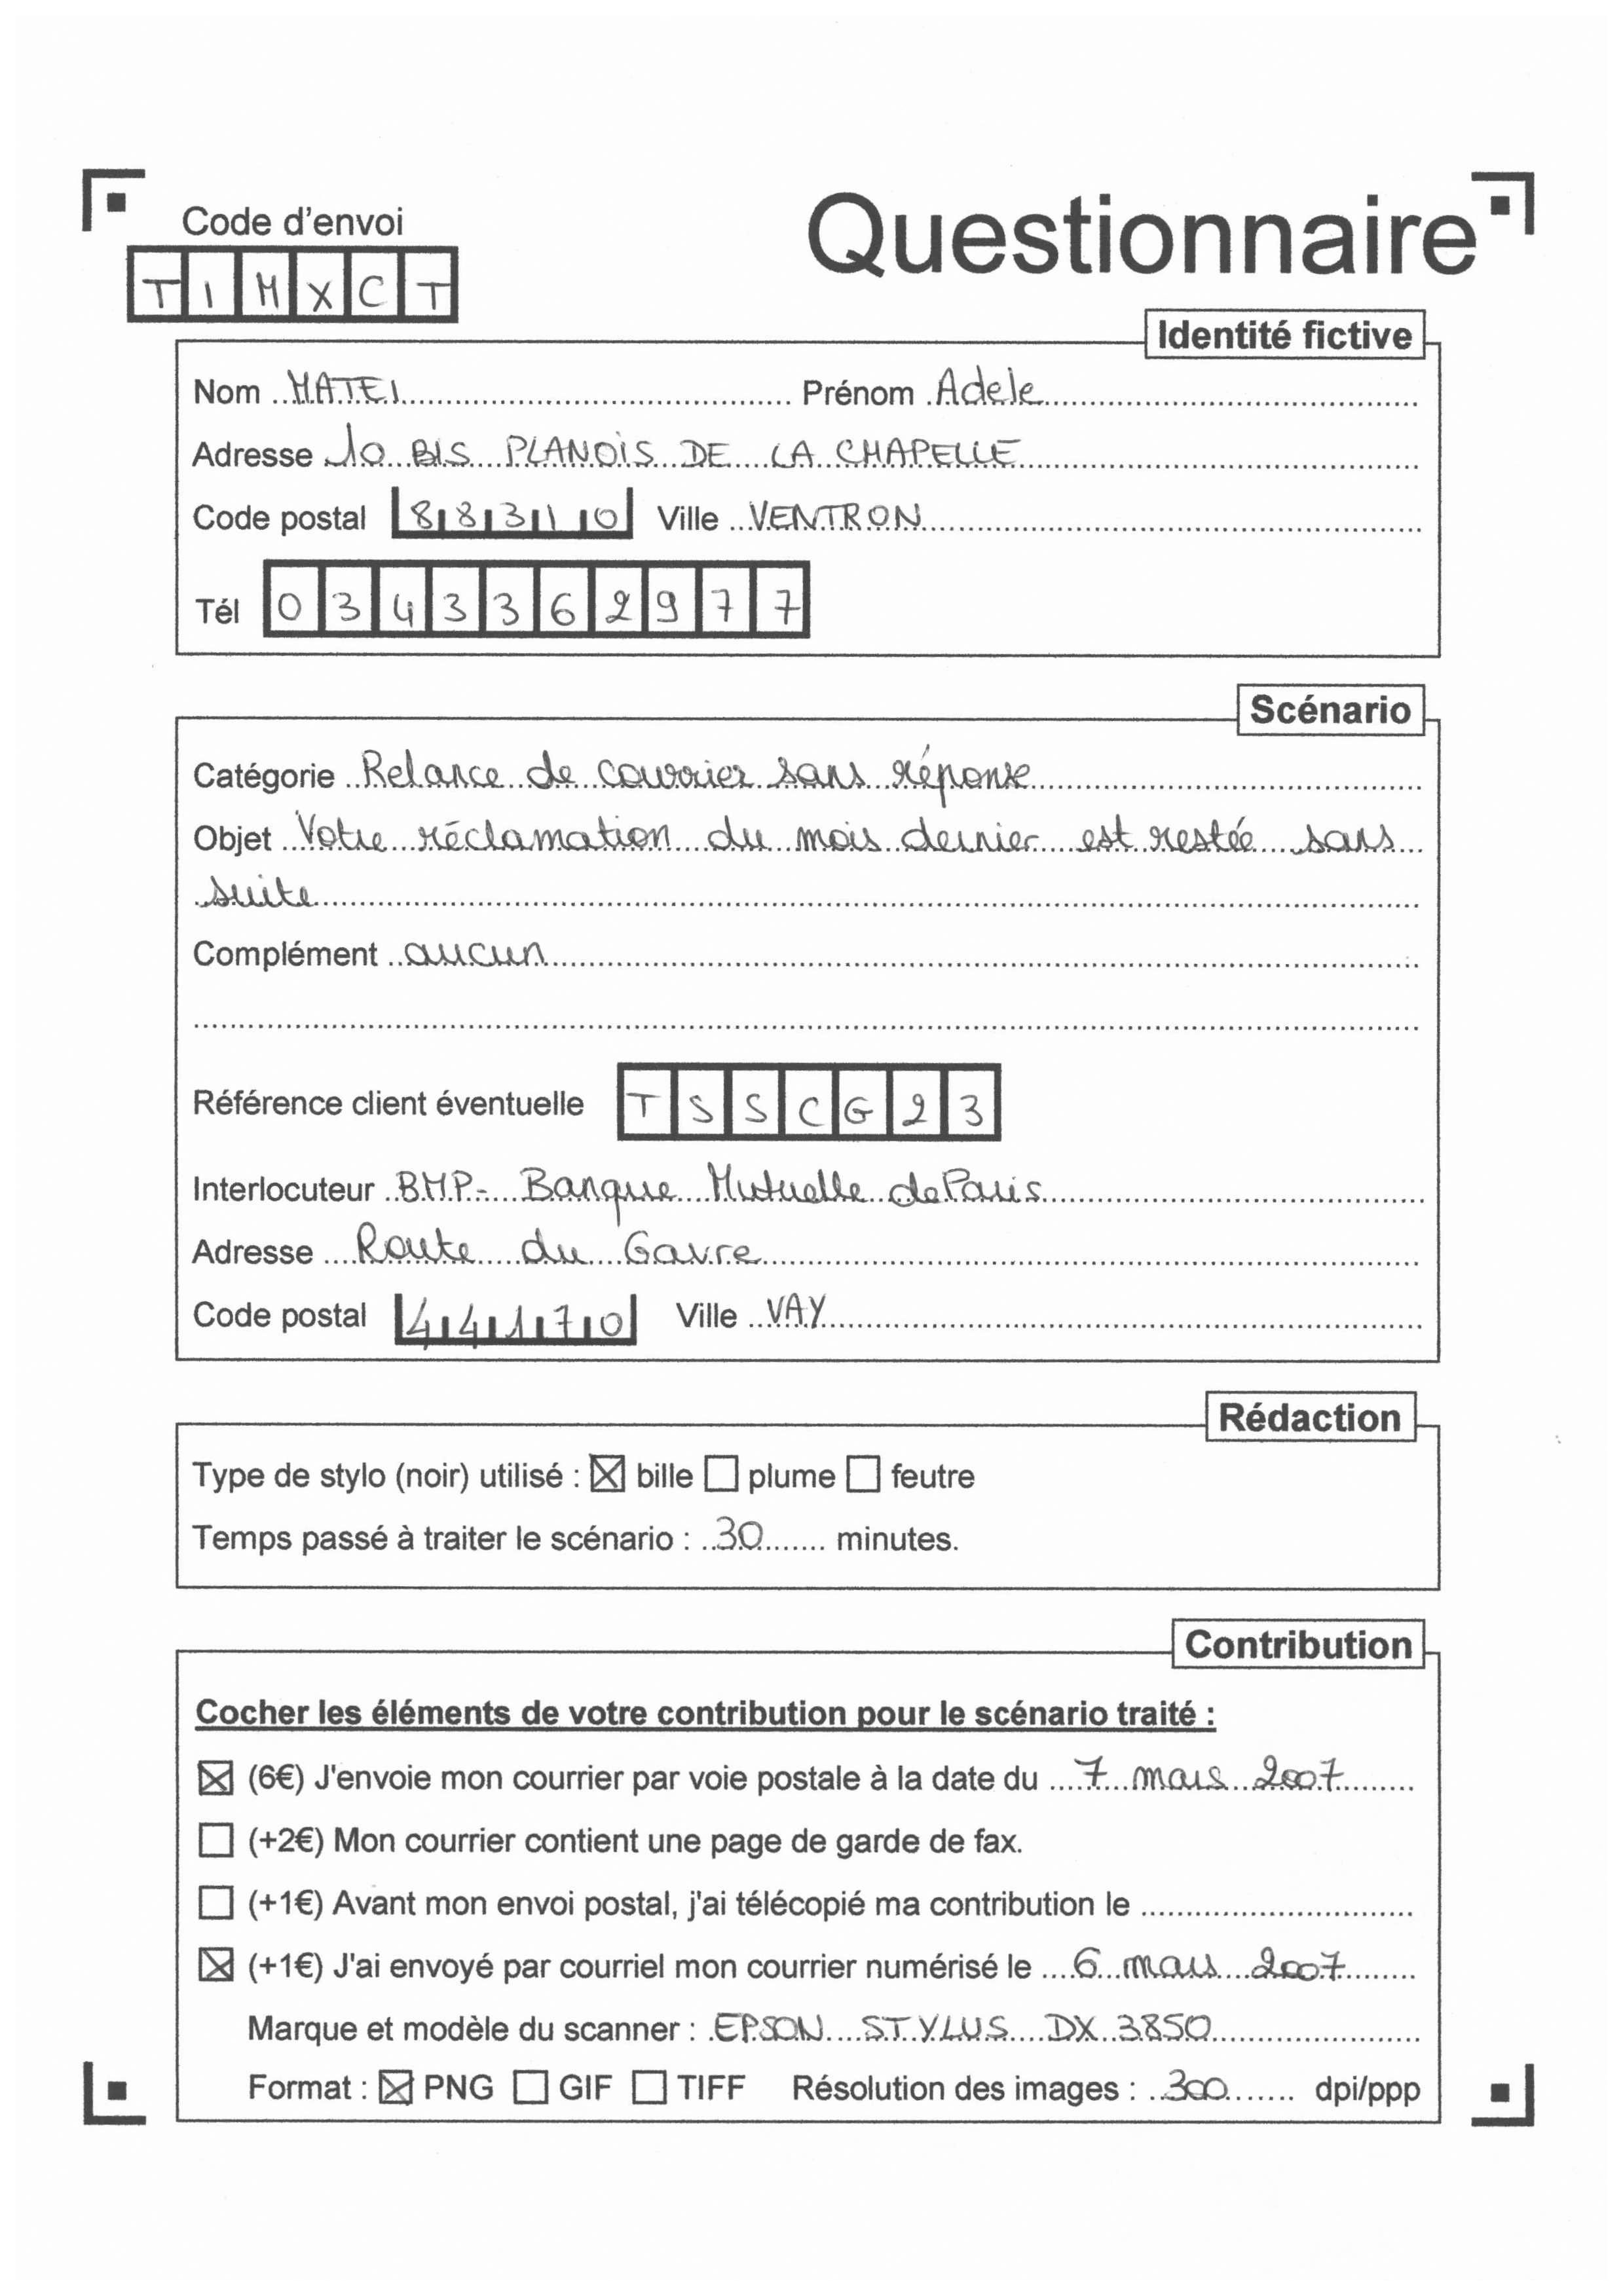 Code d'envoi
Questionnaire
T I M X C T
Identité fictive
Nom MATEI Prénom Adele
Adresse 10 BIS PLANOIS DE LA CHAPELLE
Code postal 88310 Ville VENTRON
Tél 0343362977
Scénario
Catégorie Relance de courrier sans réponse
Objet Votre réclamation du mois dernier est restée sans
suite
Complément aucun
Référence client éventuelle TSSCG23
Interlocuteur BMP- Banque Mutuelle de Paris
Adresse Route du Gavre
Code postal 44170 Ville VAY
Rédaction
Type de stylo (noir) utilisé : ☒ bille ☐ plume ☐ feutre
Temps passé à traiter le scénario : 30 minutes.
Contribution
Cocher les éléments de votre contribution pour le scénario traité :
☒ (6€) J'envoie mon courrier par voie postale à la date du 7 mars 2007
☐ (+2€) Mon courrier contient une page de garde de fax.
☐ (+1€) Avant mon envoi postal, j'ai télécopié ma contribution le
☒ (+1€) J'ai envoyé par courriel mon courrier numérisé le 6 mars 2007
Marque et modèle du scanner : EPSON STYLUS DX 3850
Format : ☒ PNG ☐ GIF ☐ TIFF Résolution des images : 300 dpi/ppp